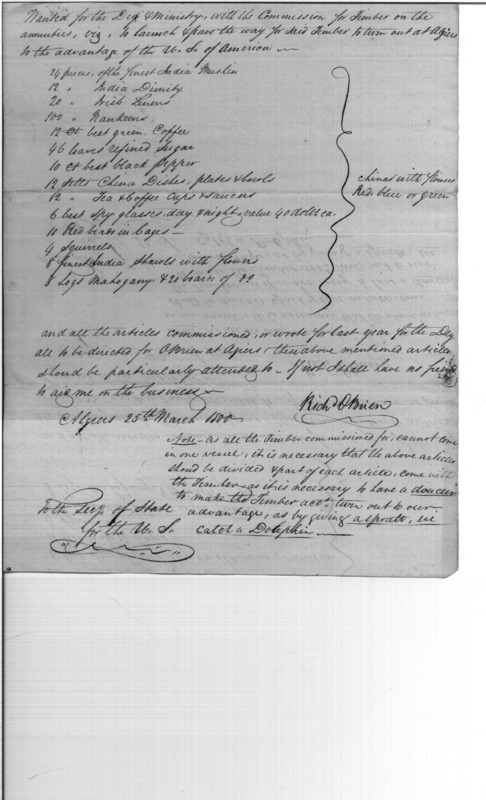 Wanted for the Dey & Ministry, with the Commission for Timber on the
annuities, viz, to launch & pave the way for said Timber to turn out at Algiers
to the advantage of the U. S. of America —
24 pieces, of the finest India Muslin
12 " India Dimity
20 " Irish Linens
100 " Nankeens.
12 Ct best green Coffee
46 loaves refined Sugar
10 ct best black pepper
12 setts China Dishes, plates & bowls
12 " Tea & Coffee cups & saucers
chinas with flowers
Red blue or green
6 best Spy glasses day & night, value 40 doll ea.
10 Red birds in Cages —
4 Squirrels
8 finest India Shawls with flowers
8 Logs Mahogany & 20 boards of do
and all the articles commissioned, or wrote for last year for the Dey
all to be directed for OBrien at Algiers, these above mentioned articles
should be particularly attended to — If not I shall have no friend
to aid me on the business —
Richd OBrien
Algiers 25th March 1800
Note — as all the Timber commissioned for, cannot come
in one vessel, it is necessary that the above articles
should be divided & part of each article, come with
the Timber — as it is necessary to have a douceur
to make the Timber acct. turn out to our
advantage, as by giving a spratt, we
catch a Dolphin —
To the Secy of State
for the U. S.